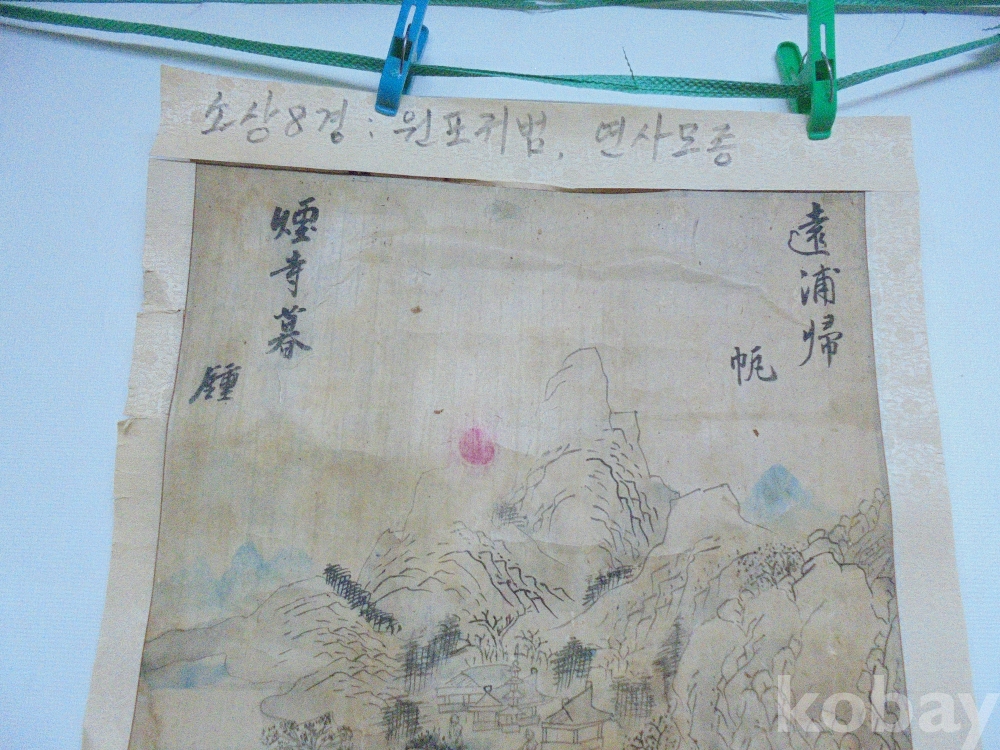 소상8경 : 원포귀범, 연사모종
遠浦歸
帆
煙寺暮
鍾
kobay